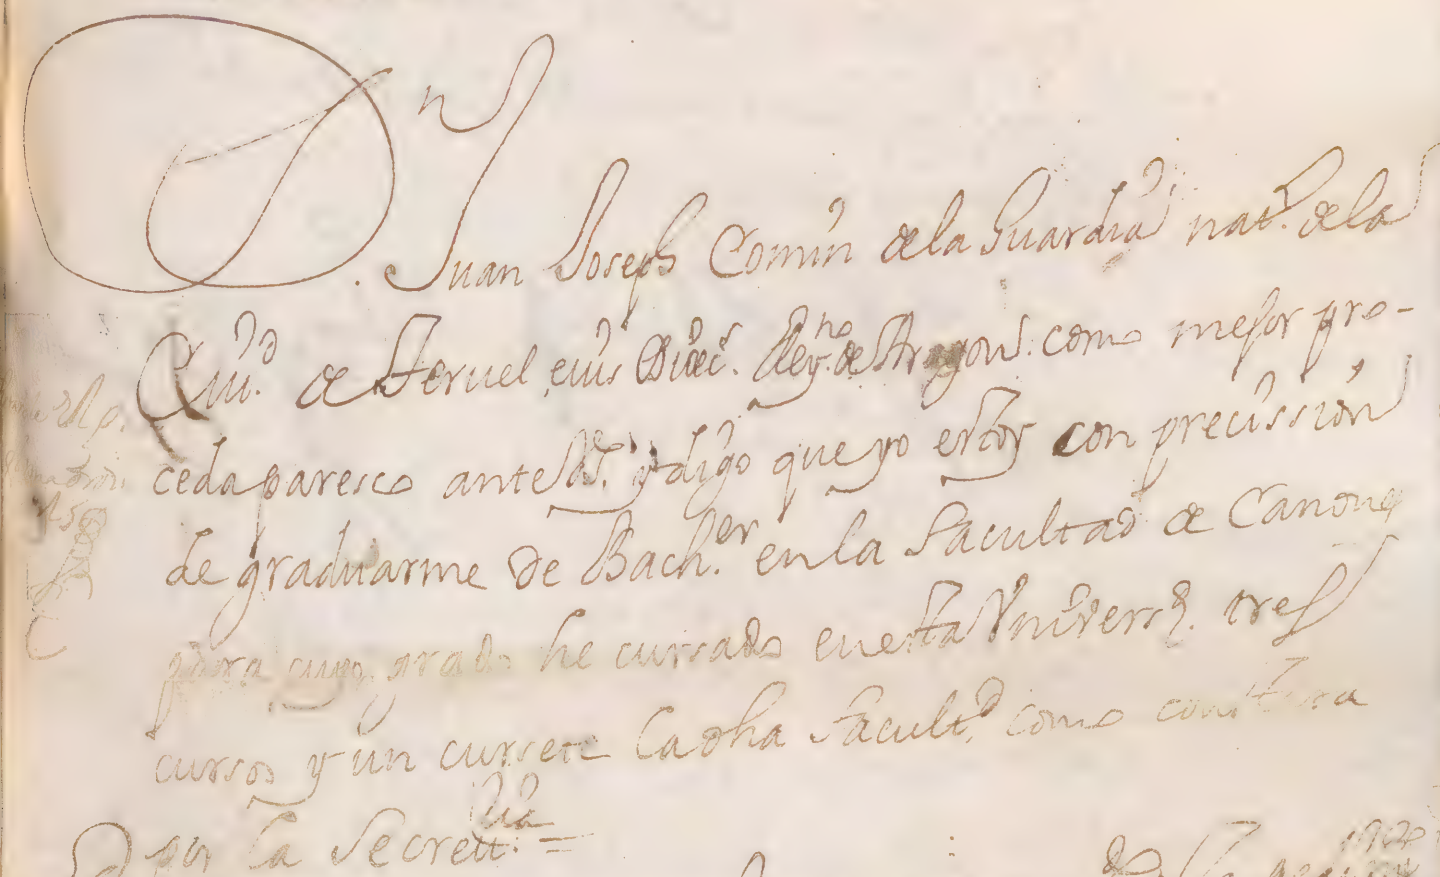 Dn. Juan Joseph Comín de la Guardia natl. de la
Ciud. de Teruel eius Diœcs. Reyno. de Aragon. como mejor pro-
ceda paresco ante Vs. y digo que yo estoy con precission
de graduarme de Bacher. en la facultad de Canones
para cuyo grado he cursado en esta Vniversd. tres
cursos y un cursete en dha facultd. como constara
por la Secretria. =